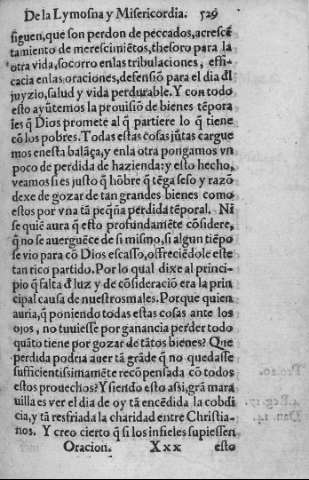 De la Lymosna y Misericordia. 529
siguen, que son perdon de peccados, acrescẽ
tamiento de merescimiẽtos, thesoro para la
otra vida, socorro en las tribulaciones, effi-
cacia en las oraciones, defensiõ para el dia dl
juyzio, salud y vida perdurable. Y con todo
esto ayũtemos la prouisiõ de bienes tẽpora
les q̃ Dios promete al q̃ partiere lo q̃ tiene
cõ los pobres. Todas estas cosas jũtas cargue
mos en esta balãça, y en la otra pongamos vn
poco de perdida de hazienda: y esto hecho,
veamos si es justo q̃ hõbre q̃ tẽga seso y razõ
dexe de gozar de tan grandes bienes como
estos por vna tã peq̃ña perdida tẽporal. Ni
se quiẽ aura q̃ esto profundamẽte cõsidere,
q̃ no se auerguẽce de si mismo, si algun tiẽpo
se vio para cõ Dios escasso, offreciẽdole este
tan rico partido. Por lo qual dixe al princi-
pio q̃ falta d̃ luz y de cõsideraciõ era la prin
cipal causa de nuestros males. Porque quien
auria, q̃ poniendo todas estas cosas ante los
ojos, no tuuiesse por ganancia perder todo
quãto tiene por gozar de tãtos bienes? Que
perdida podria auer tã grãde q̃ no quedasse
sufficientissimamẽte recõpensada cõ todos
estos prouechos? Y siendo esto assi, grã mara
uilla es ver el dia de oy tã encẽdida la cobdi
cia, y tã resfriada la charidad entre Christia-
nos. Y creo cierto q̃ si los infieles supiessen
Oracion. Xxx esto